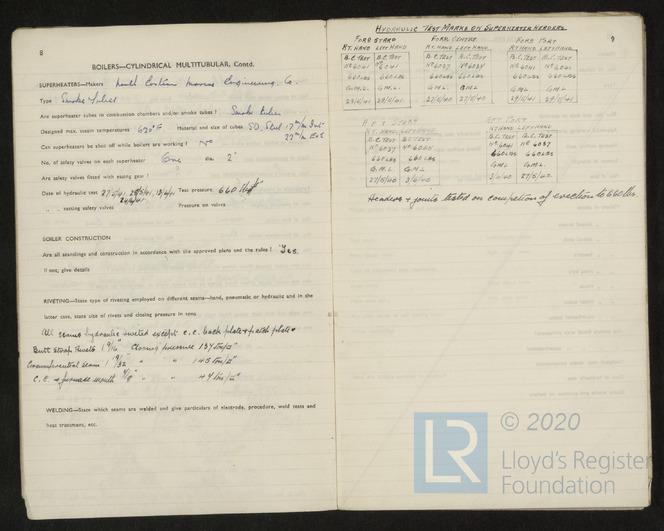 8
BOILERS—CYLINDRICAL MULTITUBULAR, Contd.
SUPERHEATERS—Makers North Eastern Marine Engineering Co.
Type Smoke Tubes
Are superheater tubes in combustion chambers and/or smoke tubes ? Smoke tubes
Designed max. steam temperatures 630°F Material and size of tubes S.D. Steel 17 m/m Int
23 m/m Ext
Can superheaters be shut off while boilers are working ? No
No. of safety valves on each superheater One dia. 2"
Are safety valves fitted with easing gear ?
Date of hydraulic test Test pressure 660
" " setting safety valves Pressure on valves
BOILER CONSTRUCTION
Are all scantlings and construction in accordance with the approved plans and the rules ? Yes
If not, give details
RIVETING—State type of riveting employed on different seams—hand, pneumatic or hydraulic and in the
latter case, state size of rivets and closing pressure in tons
All seams hydraulic riveted except C.C. back plate & patch plate
Butt Strap Rivets 1 9/16" Closing pressure
Circumferential seam 1 " "
C.C. & furnace mouth " "
WELDING—State which seams are welded and give particulars of electrode, procedure, weld tests and
heat treatment, etc.
9
HYDRAULIC TEST MARKS ON SUPERHEATER HEADERS
FORD STARD FORD CENTRE FORD PORT
RT. HAND LEFT HAND RT. HAND LEFT HAND RT HAND LEFT HAND
B.C. TEST B.C. TEST B.C. TEST B.C. TEST B.C. TEST B.C. TEST
Nº 6041 Nº 6041 Nº 6037 Nº 6034 Nº 6041 Nº 6041
660 LBS 660 LBS 660 LBS 660 LBS 660 LBS 660 LBS
G.M.L. G.M.L. G.M.L. G.M.L. G.M.L. G.M.L.
AFT PORT
RT HAND LEFT HAND RT HAND LEFT HAND
B.C. TEST B.C. TEST B.C. TEST B.C. TEST
Nº 6037 Nº 6041 Nº 6037
660 LBS 660 LBS 660 LBS 660 LBS
G.M.L. G.M.L. G.M.L. G.M.L.
Headers & joints tested on completion of erection to 660 lbs.
LR © 2020
Lloyd's Register
Foundation